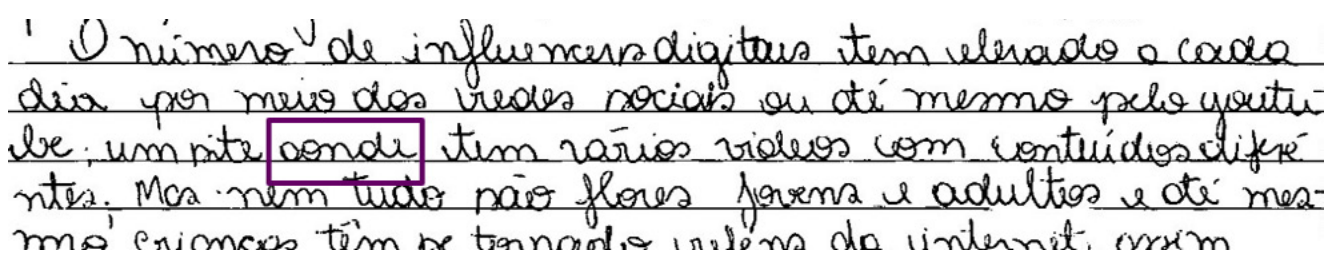 O número de influencers digitais tem elevado a cada
dia por meio das redes sociais ou até mesmo pelo youtu-
be, um site aonde tem vários videos com conteúdos difere
ntes. Mas nem tudo são flores jovens e adultos e até mes-
mo crianças têm se tornado reféns da internet, assim